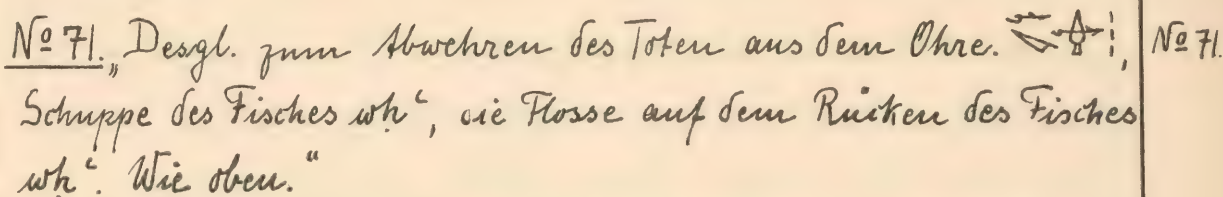 Nº 71. „Desgl. zum Abwehren des Toten aus dem Ohre. , Nº 71.
Schuppe des Fisches wḥʿ, die Flosse auf dem Rücken des Fisches
wḥʿ. Wie oben.“